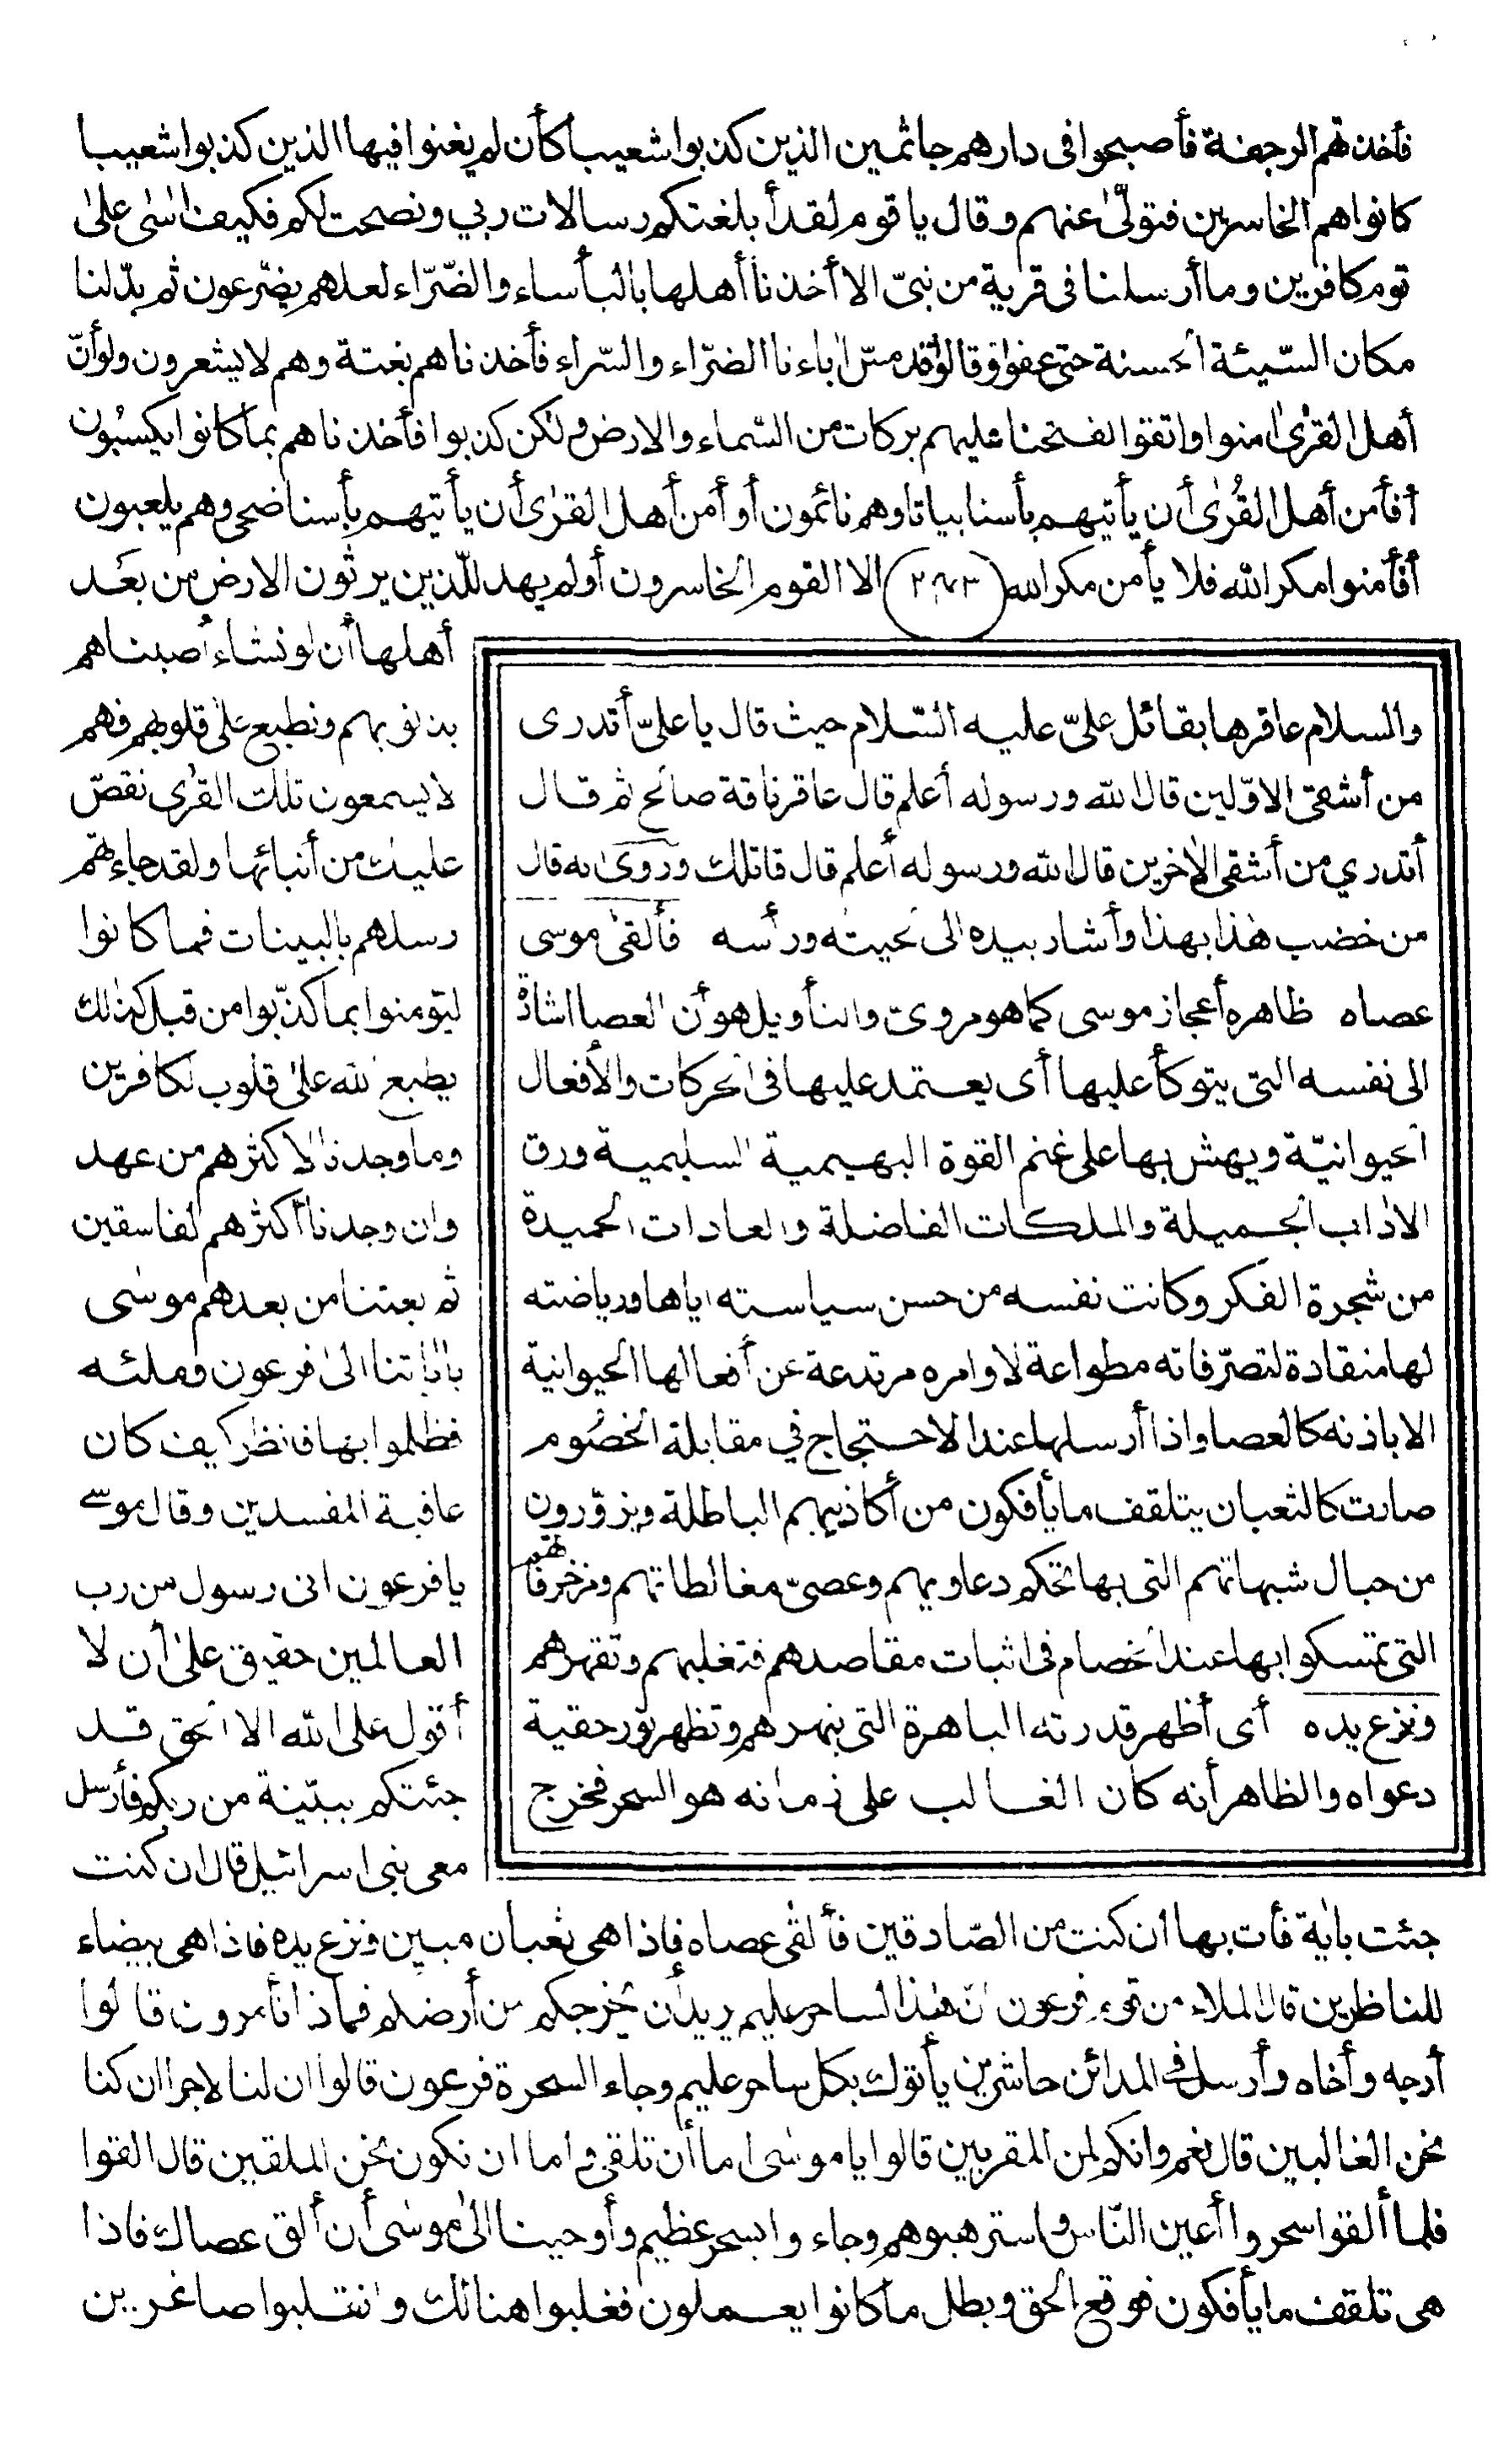 فأخذتهم الرجفة فأصبحوا في دارهم جاثمين الذين كذبوا شعيبا كأن لم يغنوا فيها الذين كذبوا شعيبا
كانوا هم الخاسرين فتولّى عنهم وقال يا قوم لقد أبلغتكم رسالات ربي ونصحت لكم فكيف اٰسٰى علىٰ
قوم كافرين وما أرسلنا في قرية من نبىّ الا أخذنا أهلها بالبأساء والضّرّاء لعلهم يضّرّعون ثم بدّلنا
مكان السّيئة الحسنة حتى عفوا وقالوا قد مسّ اٰباءنا الضرّاء والسّراء فأخذناهم بغتة وهم لا يشعرون ولو أنّ
أهل القرىٰ اٰمنوا واتقوا لفتحنا عليهم بركات من السّماء والارض ولٰكن كذبوا فأخذناهم بما كانوا يكسبُون
أفأمن أهل القُرىٰ أن يأتيهم بأسنا بياتا وهم نائمون أو أمن أهل القرىٰ أن يأتيهم بأسنا ضحى وهم يلعبون
أفأمنوا مكر الله فلا يأمن مكر الله الا القوم الخاسرون أولم يهد للّذين يرثون الارض من بعَد
أهلها أن لو نشاء أصبناهم
بذنوبهم ونطبع علىٰ قلوبهم فهم
لا يسمعون تلك القرٰى نقصّ
عليك من أنبائها ولقد جاءتهم
رسلهم بالبينات فما كانوا
ليؤمنوا بما كذّبوا من قبل كذٰلك
يطبع الله علىٰ قلوب الكافرين
وما وجدنا لأكثرهم من عهد
وان وجدنا أكثرهم لفاسقين
ثم بعثنا من بعدهم موسٰى
باٰياتنا الىٰ فرعون وملئه
فظلموا بها فانظر كيف كان
عاقبة المفسدين وقال موسى
يا فرعون انى رسول من رب
العالمين حقيق علىٰ أن لا
أقول على الله الا الحق قد
جئتكم ببيّنة من ربكم فأرسل
معى بنى اسرائيل قال ان كنت
والسلام عاقرها بقائل علىّ عليه السّلام حيث قال يا علىّ أتدرى
من أشقى الاوّلين قال الله ورسوله أعلم قال عاقر ناقة صالح ثم قال
أتدري من أشقى الاٰخرين قال الله ورسوله أعلم قال قاتلك وروى انه قال
من خضب هٰذا بهذا وأشار بيده الى لحيته ورأسه فألقىٰ موسى
عصاه ظاهره أعجاز موسى كما هو مروىّ والتأويل هو أن العصا اشارة
الى نفسه التى يتوكأ عليها أى يعتمد عليها فى الحركات والأفعال
الحيوانيّة ويهش بها على غنم القوة البهيمية السليمية ورق
الاٰداب الجميلة والملكات الفاضلة والعادات الحميدة
من شجرة الفكر وكانت نفسه من حسن سياسته اياها ورياضته
لها منقادة لتصرّفاته مطواعة لاوامره مرتدعة عن أفعالها الحيوانية
الا باذنه كالعصا واذا أرسلها عند الاحتجاج في مقابلة الخصُوم
صارت كالثعبان يتلقف ما يأفكون من أكاذيبهم الباطلة ويزوّرون
من حبال شبهاتهم التى بها تحكم دعاويهم وعصىّ مغالطاتهم ومزخرفاتهم
التى تمسكوا بها عند الخصام فى اثبات مقاصدهم فتغلبهم وتقهرهم
ونزع يده أى أظهر قدرته الباهرة التى تبهرهم وتظهر نور حقية
دعواه والظاهر أنه كان الغالب على زمانه هو السحر فخرج
جئت باٰية فأت بها ان كنت من الصّادقين فألقٰى عصاه فإذا هى ثعبان مبين ونزع يده فاذا هى بيضاء
للناظرين قال الملاء من قوم فرعون انّ هٰذا لساحر عليم يريد أن يخرجكم من أرضكم فماذا تأمرون قالوا
أرجه وأخاه وأرسل في المدائن حاشرين يأتوك بكل ساحر عليم وجاء السحرة فرعون قالوا ان لنا لاجرا ان كنا
نحن الغالبين قال نعم وانكم لمن المقربين قالوا يا موسٰى اما أن تلقى واما ان نكون نحن الملقين قال القوا
فلما ألقوا سحروا أعين النّاس واسترهبوهم وجاءوا بسحر عظيم وأوحينا الىٰ موسٰى أن ألق عصاك فاذا
هى تلقف ما يأفكون فوقع الحق وبطل ما كانوا يعملون فغلبوا هنالك وانقلبوا صاغرين